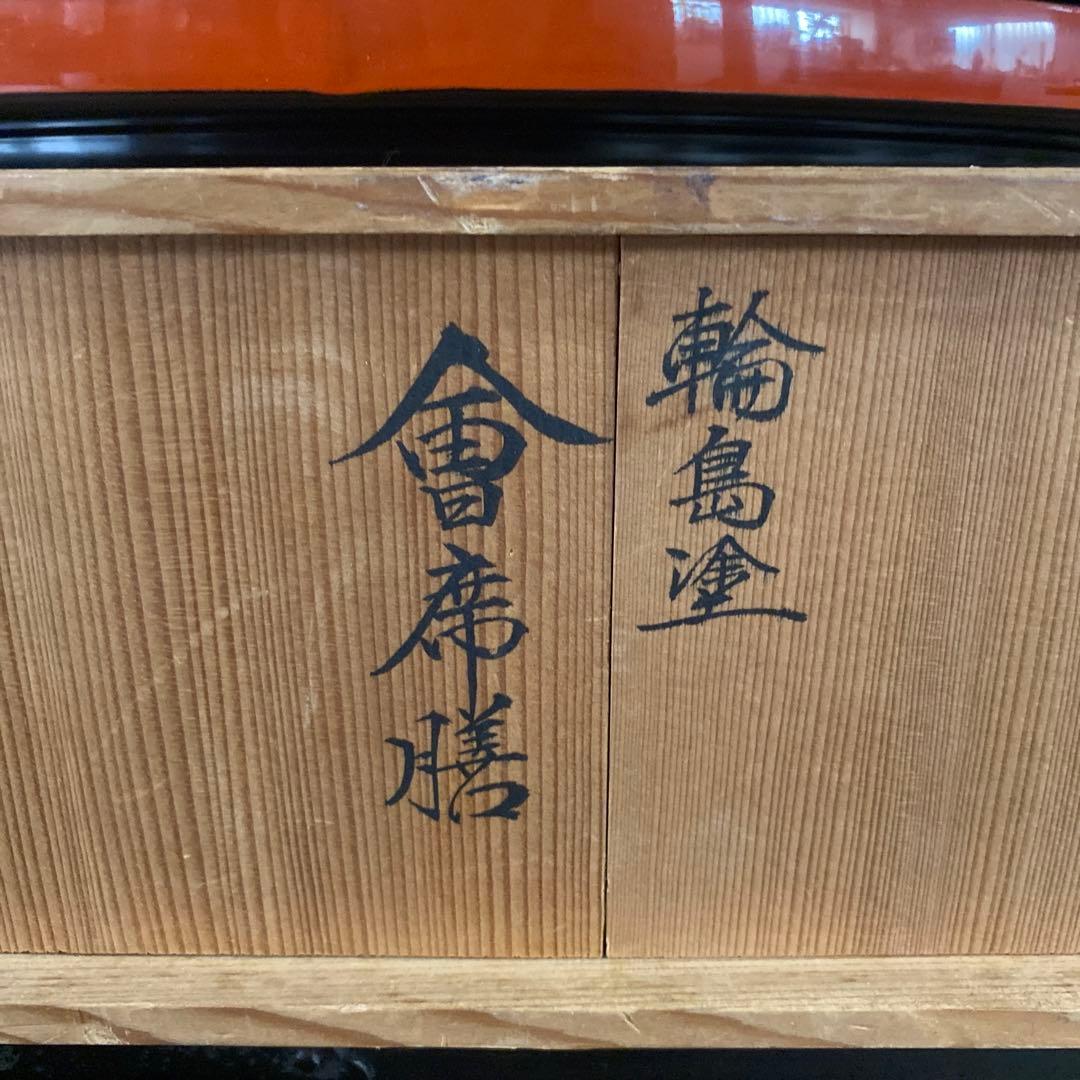 輪島塗
會席膳